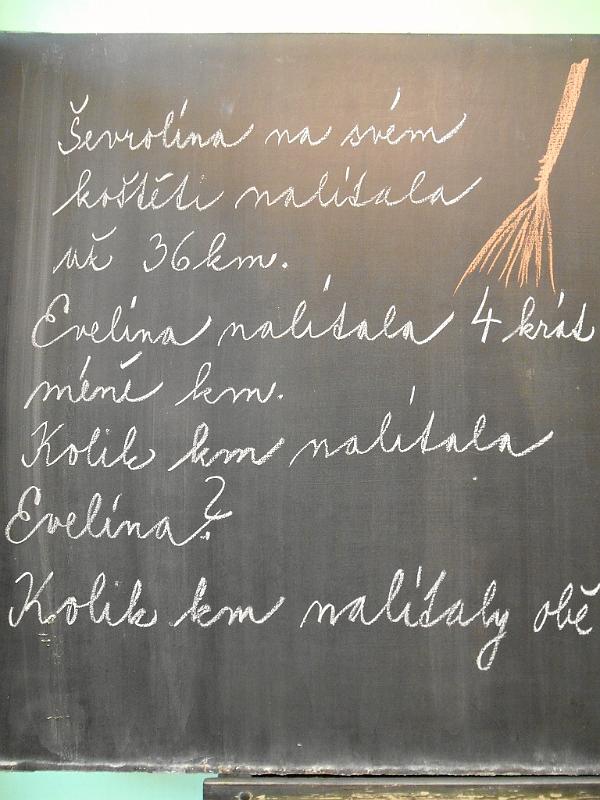 Ševrolína na svém
koštěti nalítala
už 36 km.
Evelína nalítala 4 krát
méně km.
Kolik km nalítala
Evelína?
Kolik km nalítaly obě